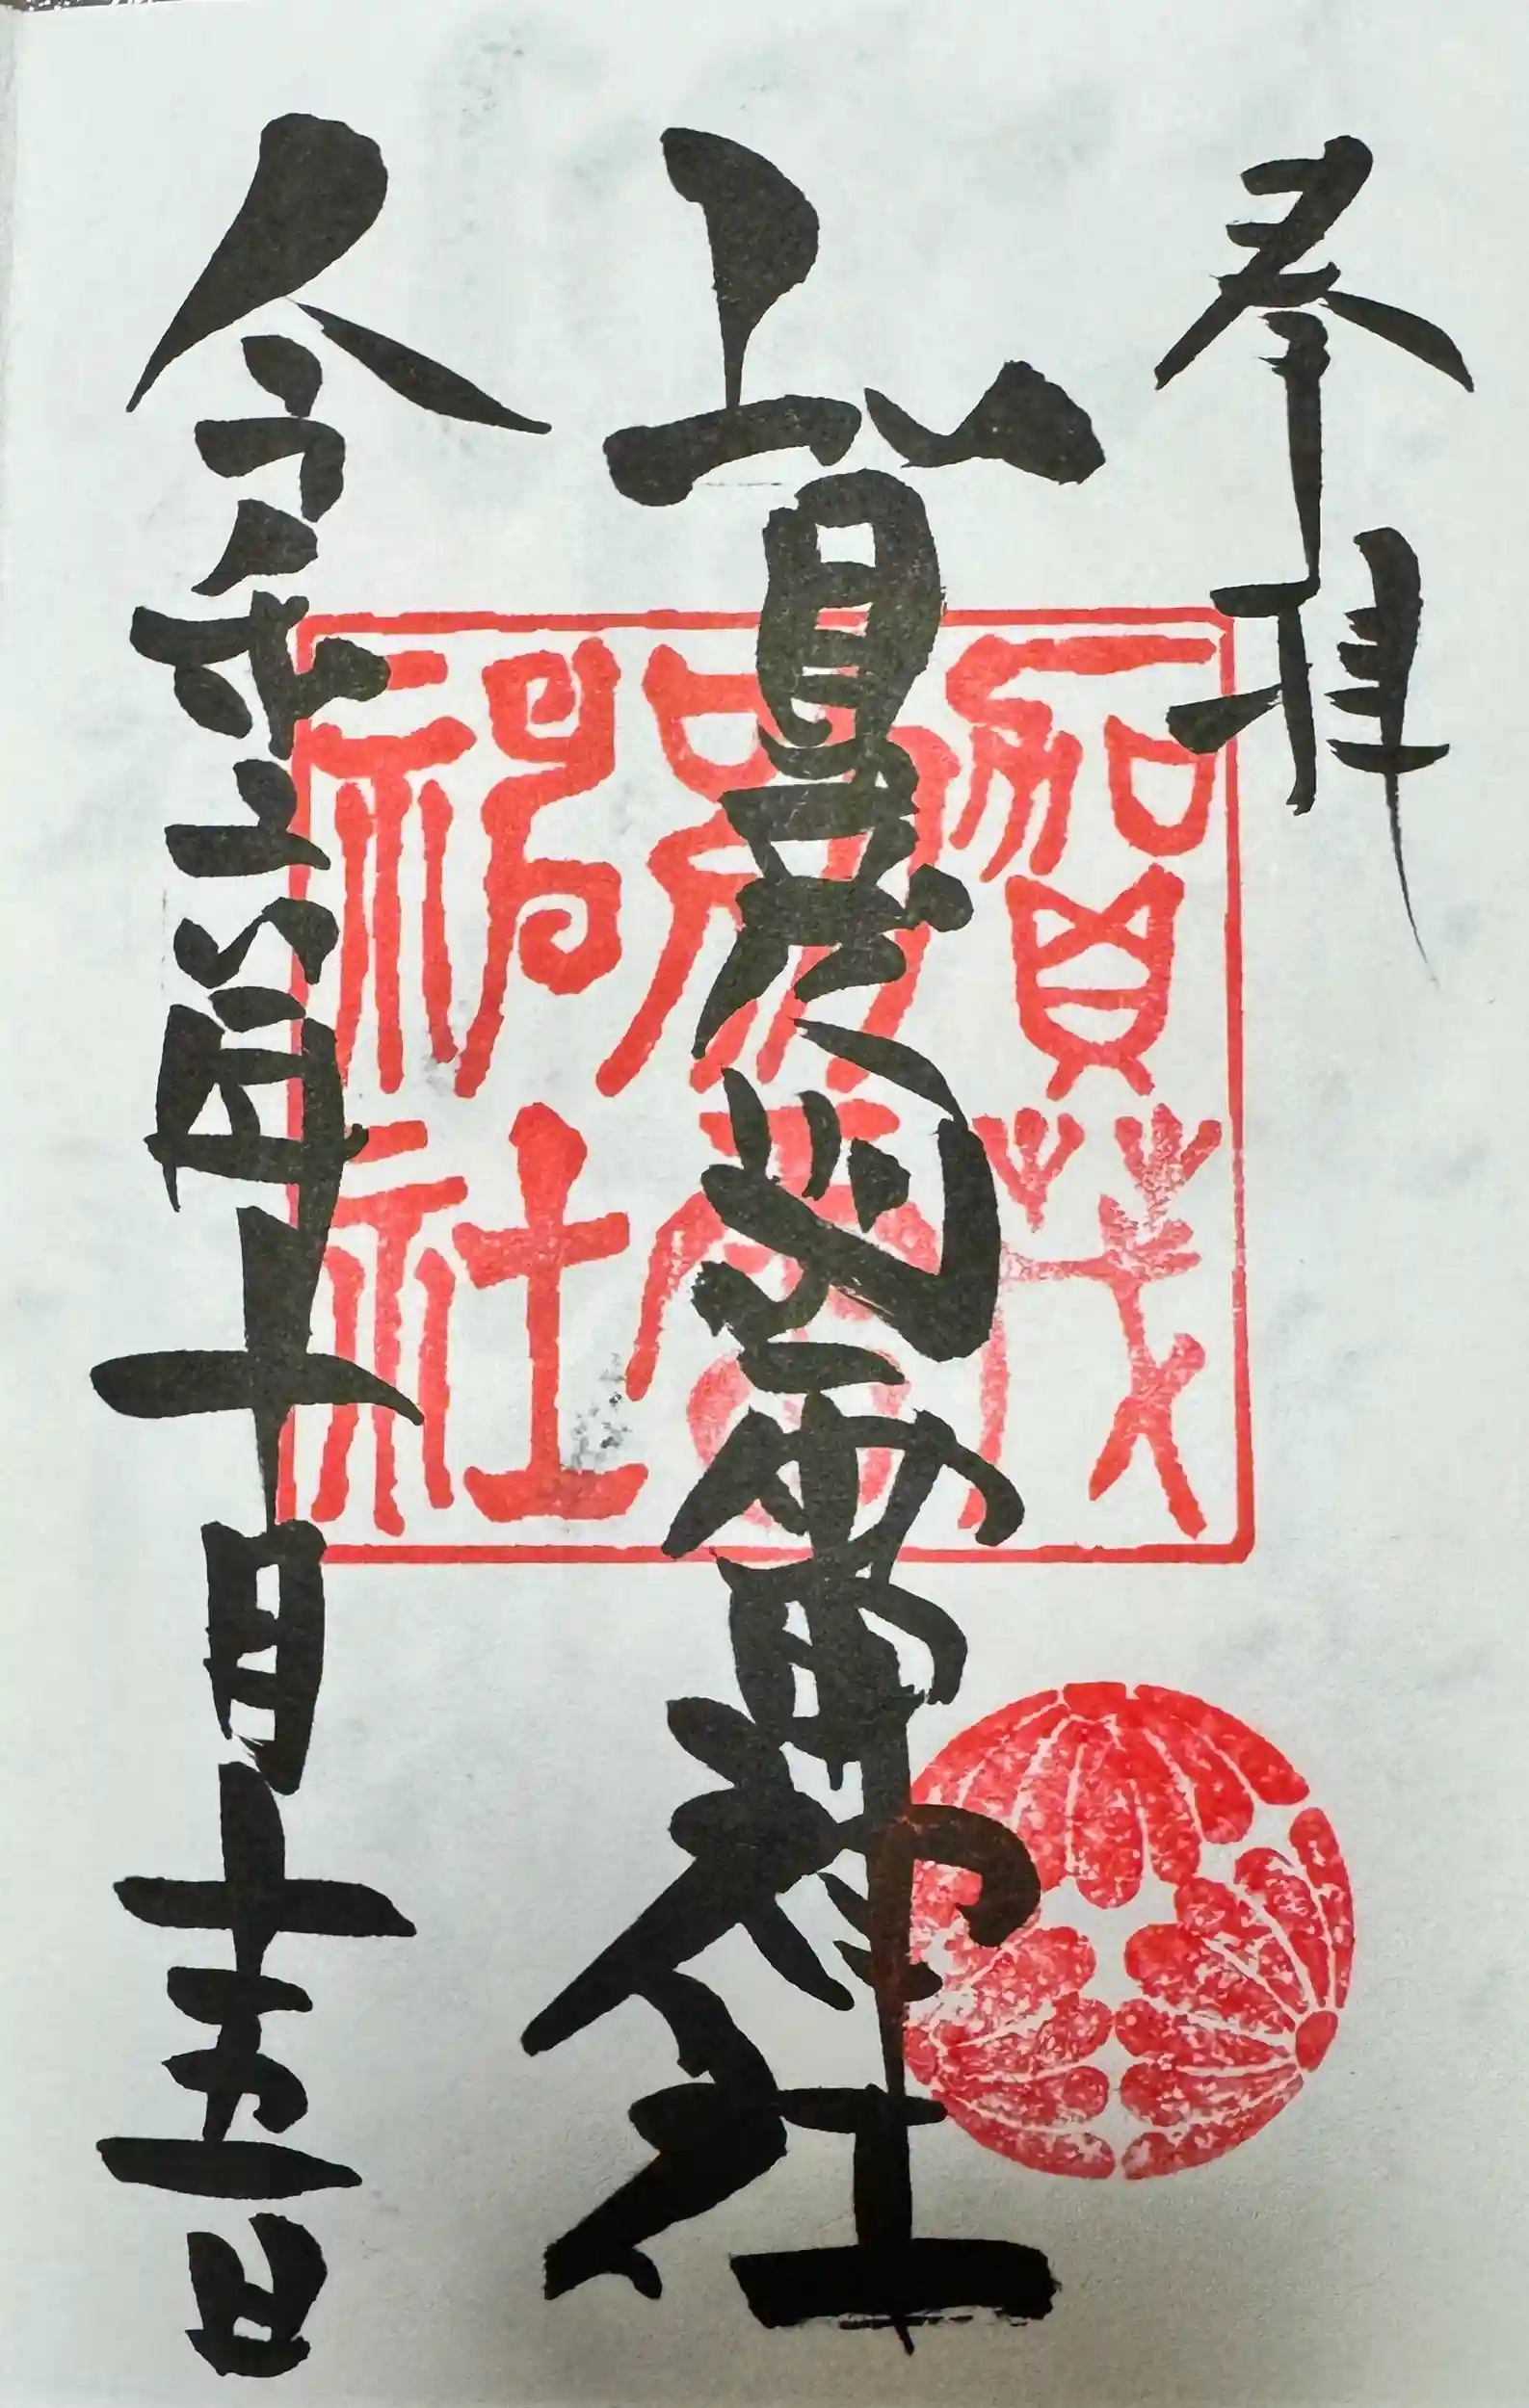 奉拝
賀茂別雷神社
賀茂別雷神社
令和六年十月十五日